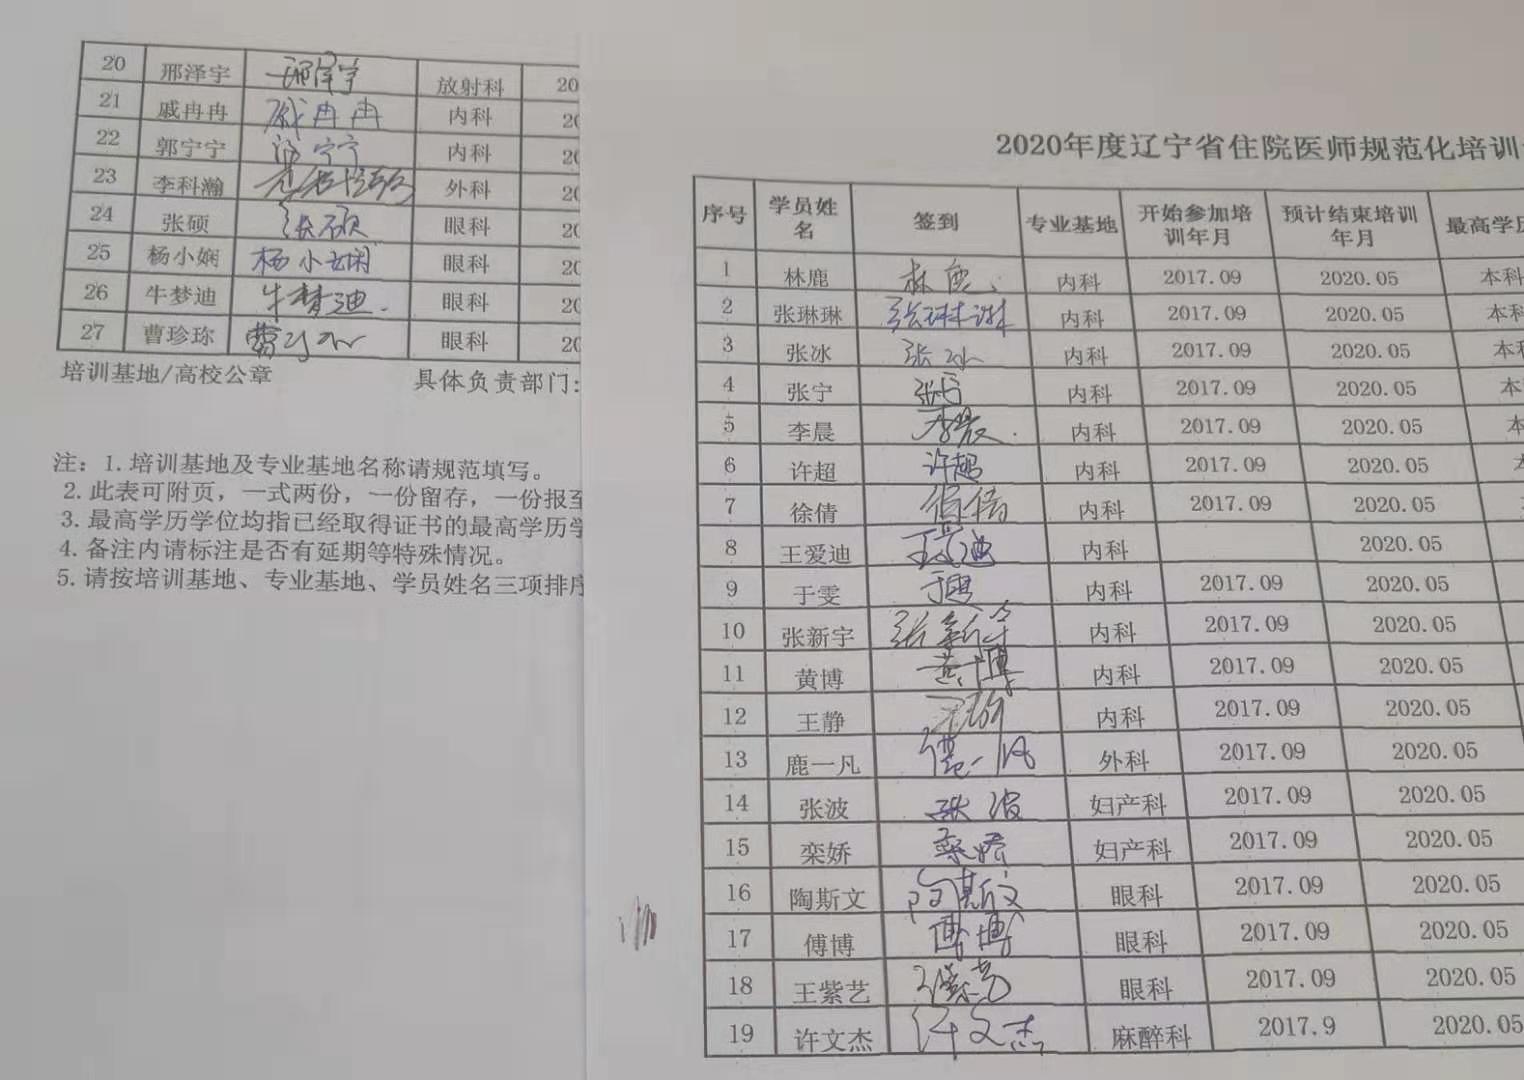 20 邢泽宇 邢泽宇 放射科 20
21 戚冉冉 戚冉冉 内科 20
22 郭宁宁 宁宁 内科 20
23 李科瀚 外科 20
24 张硕 张硕 眼科 20
25 杨小娴 杨小娴 眼科 20
26 牛梦迪 牛梦迪. 眼科 20
27 曹珍珎 曹 眼科 20
培训基地/高校公章 具体负责部门:
注: 1.培训基地及专业基地名称请规范填写。
2.此表可附页，一式两份，一份留存，一份报至
3.最高学历学位均指已经取得证书的最高学历学
4.备注内请标注是否有延期等特殊情况。
5.请按培训基地、专业基地、学员姓名三项排序
2020年度辽宁省住院医师规范化培训
序号 学员姓名 签到 专业基地 开始参加培训年月 预计结束培训年月 最高学历
1 林鹿 林鹿 内科 2017.09 2020.05 本科
2 张琳琳 张琳琳 内科 2017.09 2020.05 本科
3 张冰 张冰 内科 2017.09 2020.05 本科
4 张宁 张宁 内科 2017.09 2020.05 本
5 李晨 李晨. 内科 2017.09 2020.05 本
6 许超 许超 内科 2017.09 2020.05
7 徐倩 徐倩 内科 2017.09 2020.05
8 王爱迪 王爱迪 内科 2020.05
9 于雯 于雯 内科 2017.09 2020.05
10 张新宇 张新宇 内科 2017.09 2020.05
11 黄博 黄博 内科 2017.09 2020.05
12 王静 内科 2017.09 2020.05
13 鹿一凡 鹿一凡 外科 2017.09 2020.05
14 张波 张波 妇产科 2017.09 2020.05
15 栾娇 栾娇 妇产科 2017.09 2020.05
16 陶斯文 陶斯文 眼科 2017.09 2020.05
17 傅博 傅博 眼科 2017.09 2020.05
18 王紫艺 王紫艺 眼科 2017.09 2020.05
19 许文杰 许文杰 麻醉科 2017.9 2020.05